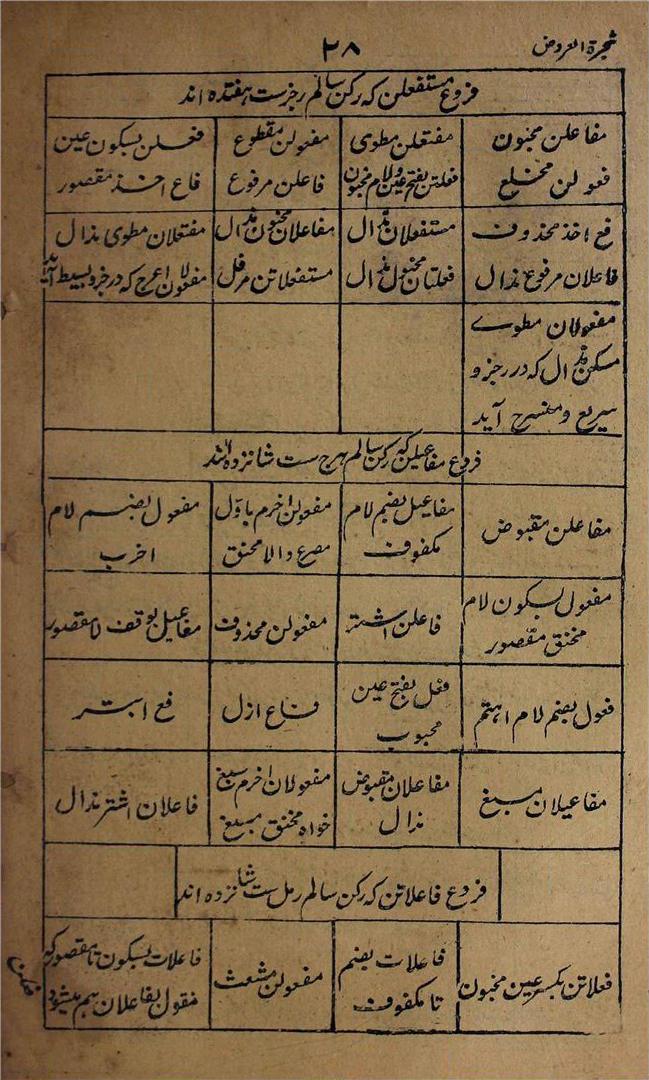 شجرة العروض
۲۸
فروع مستفعلن که رکن سالم رجزست هفتده اند
مفاعلن مخبون
فعولن مخلع
مفتعلن مطوی
فعلتن بفتح عین و لام مخبول
مفعولن مقطوع
فاعلن مرفوع
فعلن بسکون عین
فاع احذ مقصور
فع احذ محذوف
فاعلان مرفوع مذال
مستفعلان مذال
فعلتان مخبول مذال
مفاعلان مخبون مذال
مستفعلاتن مرفل
مفتعلان مطوی مذال
مفعولان اعرج که در رجز و بسیط آید
مفعولان مطوے
مسکن مذال که در رجز و
سریع و منسرح آید
فروع مفاعیلن که رکن سالم هزج ست شانزده اند
مفاعلن مقبوض
مفاعیل بضم لام
مکفوف
مفعولن اخرم باول
مصرع والا مخنق
مفعول بضم لام
اخرب
مفعول بسکون لام
مخنق مقصور
فاعلن اشتر
مفعولن محذوف
مفاعیل بوقف لام مقصور
فعول بضم لام اهتم
فعل بفتح عین
مجبوب
فاع ازل
فع ابتر
مفاعیلان مسبغ
مفاعلان مقبوض
مذال
مفعولان اخرم مسبغ
خواه مخنق مسبغ
فاعلان اشتر مذال
فروع فاعلاتن که رکن سالم رمل ست شانزده اند
فعلاتن بکسر عین مخبون
فاعلات بضم
تا مکفوف
مفعولن مشعث
فاعلات بسکون تا مقصور که
منقول بفاعلان هم میشود